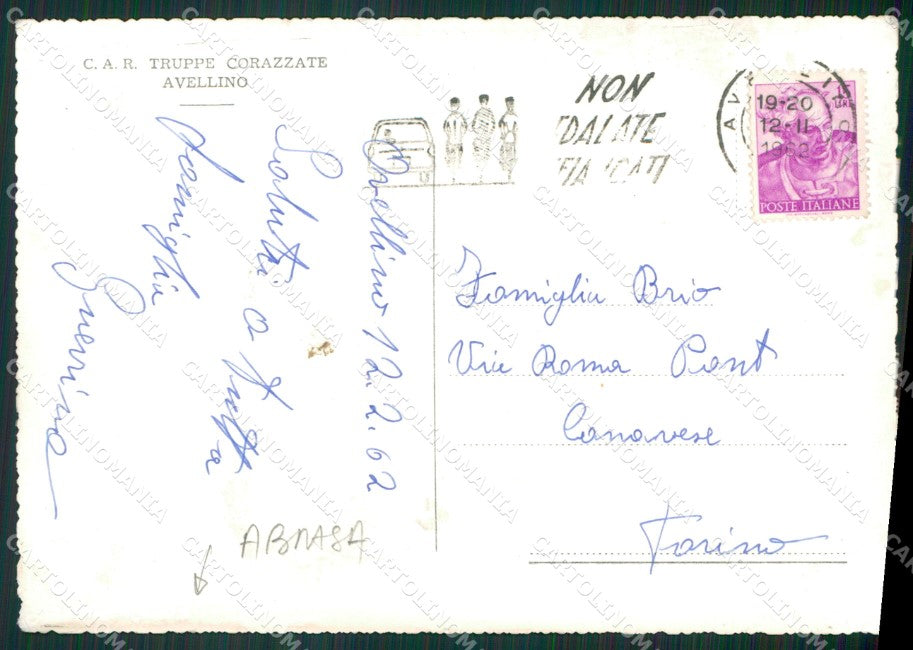 C. A. R. TRUPPE CORAZZATE
AVELLINO
NON
19-20
12-II
1962
LIRE
POSTE ITALIANE
Avellino 12.2.62
Saluti a tutta
famiglia
Guerrino
Famiglia Brio
Via Roma Pont
Canavese
Torino
ABRASA
CARTOLINOMANIA